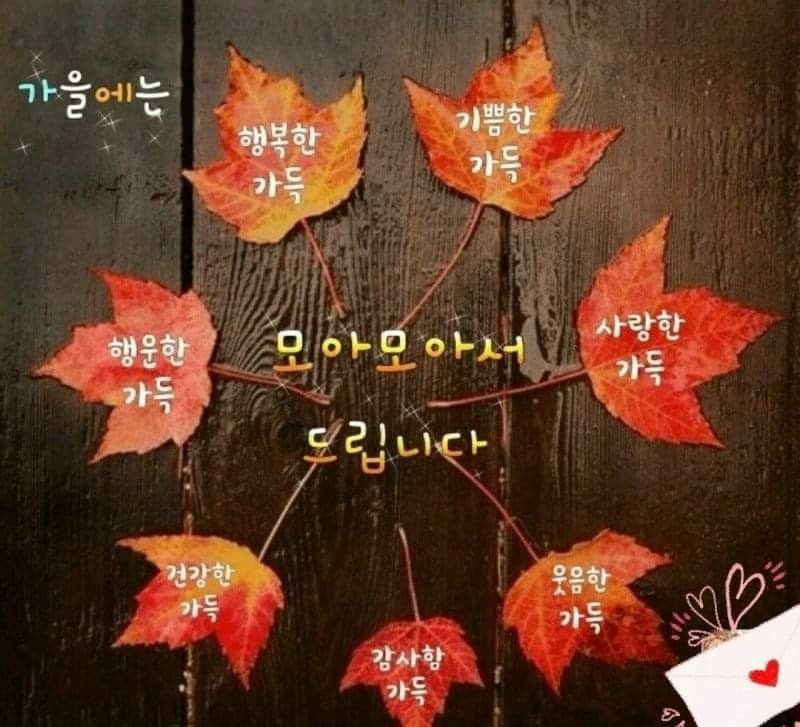 가을에는
행복한
가득
기쁨한
가득
행운한
가득
사랑한
가득
모아모아서
드립니다
건강한
가득
웃음한
가득
감사함
가득